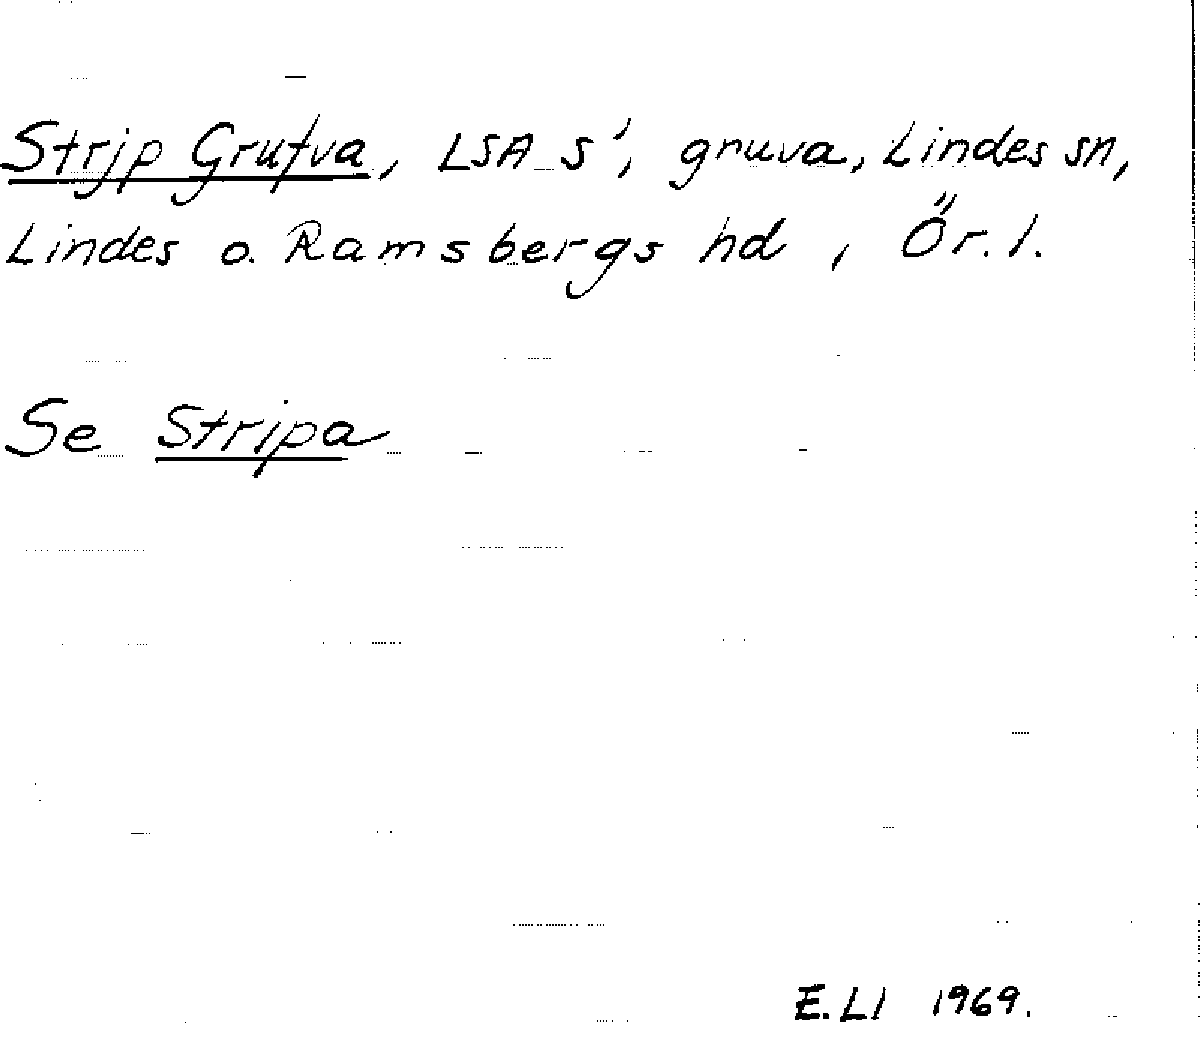 Strjp Grufva, LSA S', gruva, Lindes sn,
Lindes o. Ramsbergs hd, Ör. l.
Se Stripa
E.LI 1969.